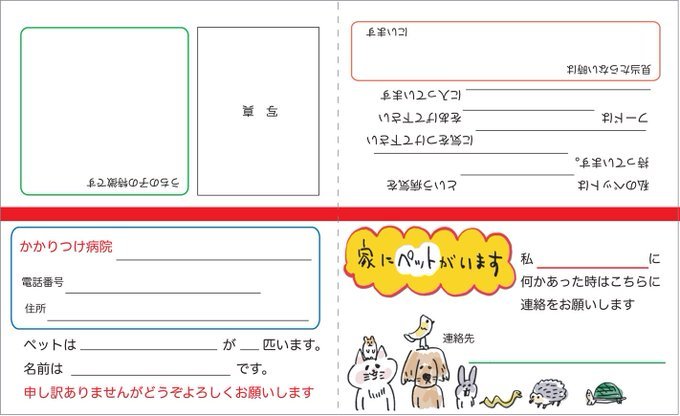 私のペットは という病気を
持っています。
に気をつけて下さい
フードは をあげて下さい
に入っています
見当たらない時は
にいます
写 真
うちの子の特徴です
かかりつけ病院
電話番号
住所
ペットは が 匹います。
名前は です。
申し訳ありませんがどうぞよろしくお願いします
家にペットがいます
私 に
何かあった時はこちらに
連絡をお願いします
連絡先